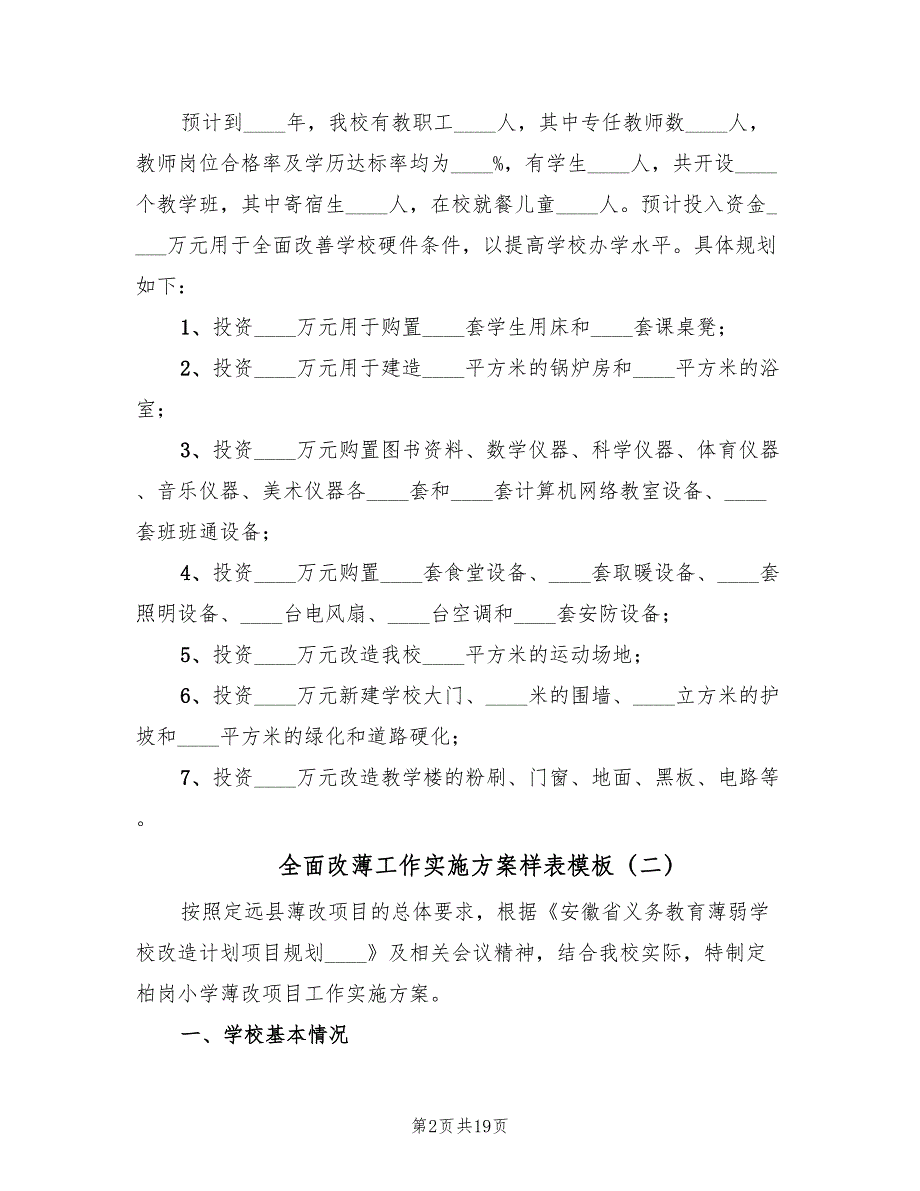 预计到____年，我校有教职工____人，其中专任教师数____人，
教师岗位合格率及学历达标率均为____%，有学生____人，共开设____
个教学班，其中寄宿生____人，在校就餐儿童____人。预计投入资金_
___万元用于全面改善学校硬件条件，以提高学校办学水平。具体规划
如下：
1、投资____万元用于购置____套学生用床和____套课桌凳；
2、投资____万元用于建造____平方米的锅炉房和____平方米的浴
室；
3、投资____万元购置图书资料、数学仪器、科学仪器、体育仪器
、音乐仪器、美术仪器各____套和____套计算机网络教室设备、____
套班班通设备；
4、投资____万元购置____套食堂设备、____套取暖设备、____套
照明设备、____台电风扇、____台空调和____套安防设备；
5、投资____万元改造我校____平方米的运动场地；
6、投资____万元新建学校大门、____米的围墙、____立方米的护
坡和____平方米的绿化和道路硬化；
7、投资____万元改造教学楼的粉刷、门窗、地面、黑板、电路等
。
全面改薄工作实施方案样表模板（二）
按照定远县薄改项目的总体要求，根据《安徽省义务教育薄弱学
校改造计划项目规划____》及相关会议精神，结合我校实际，特制定
柏岗小学薄改项目工作实施方案。
一、学校基本情况
第2页共19页